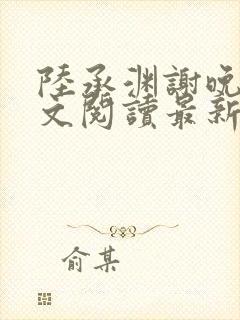 陸承淵謝晚
文閱讀最新
俞某